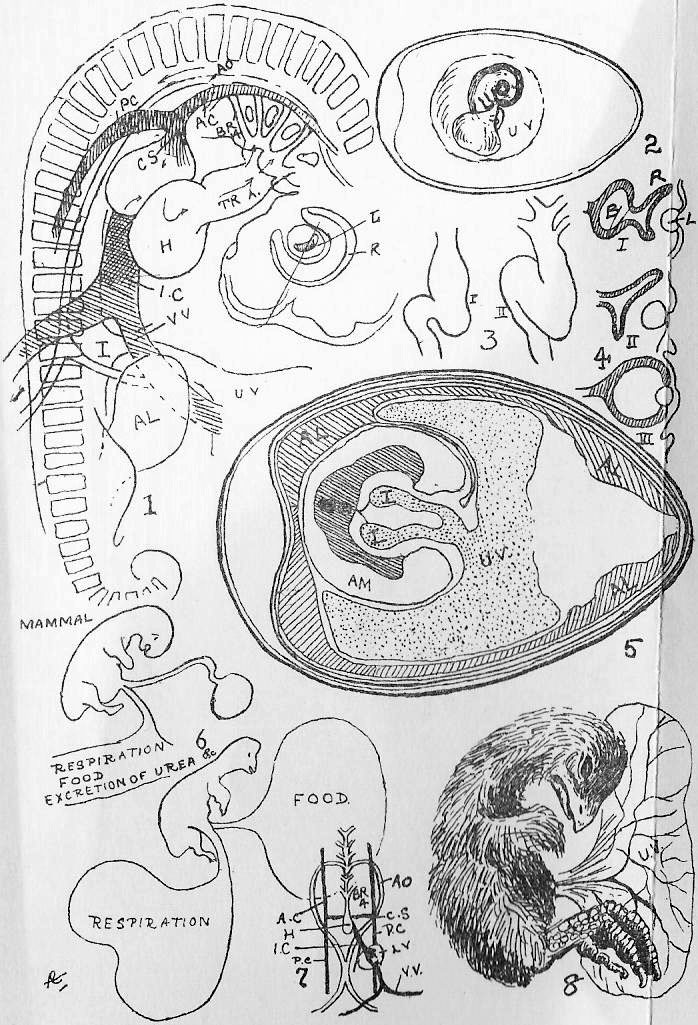 AO
PC
A.C
BR
A
C.S.
TR A.
H
L
R
I.C
V V
I
U V
AL
1
U V
2
R
B
I
L
I
II
3
II
4
III
AL
AL
I
I
U.V.
AM
AL
5
MAMMAL
RESPIRATION
FOOD
EXCRETION OF UREA
6
&c
FOOD.
RESPIRATION
AO
BR
A
A.C
C.S
H
P.C
I.C
L.V
P.C
7
V.V.
U.V.
8